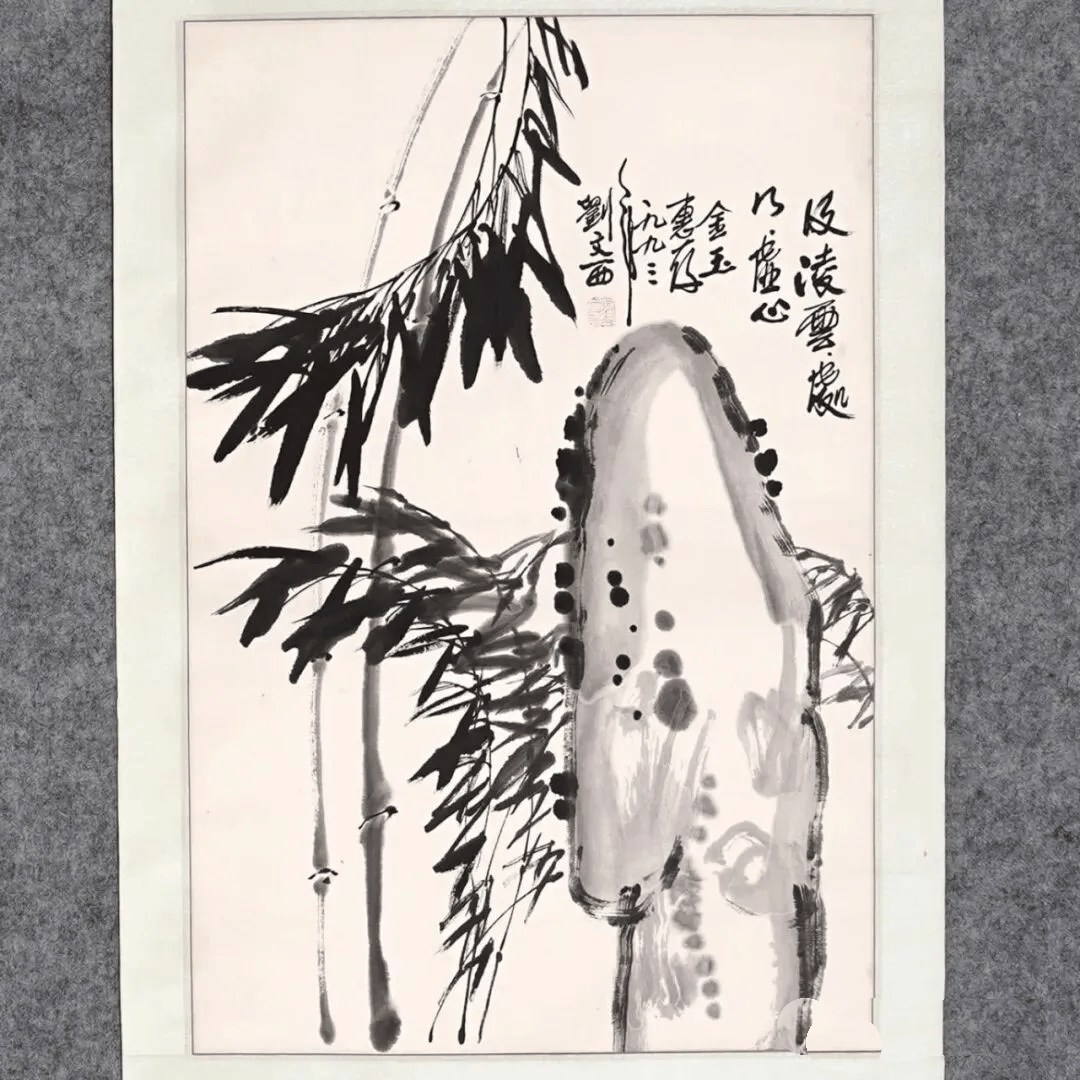 及凌雲處
仍虛心
金玉
惠存
一九九三
年
劉文西